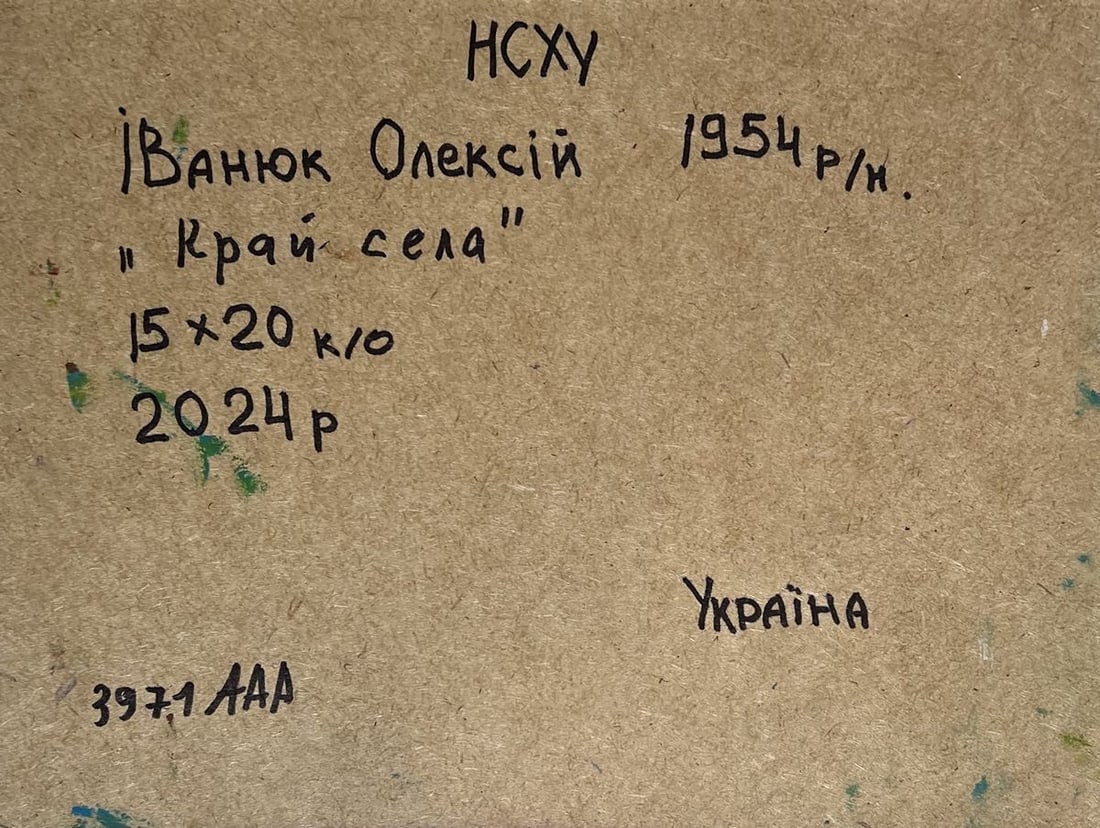 НСХУ
Іванюк Олексій 1954 р/н.
„Край села"
15×20 к/о
2024р
Україна
3971 ААА